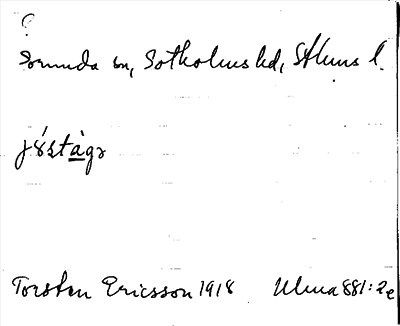 Sorunda sn, Sotholms hd, Sthlms l.
Torsten Ericsson 1918 Ulma 881:2e